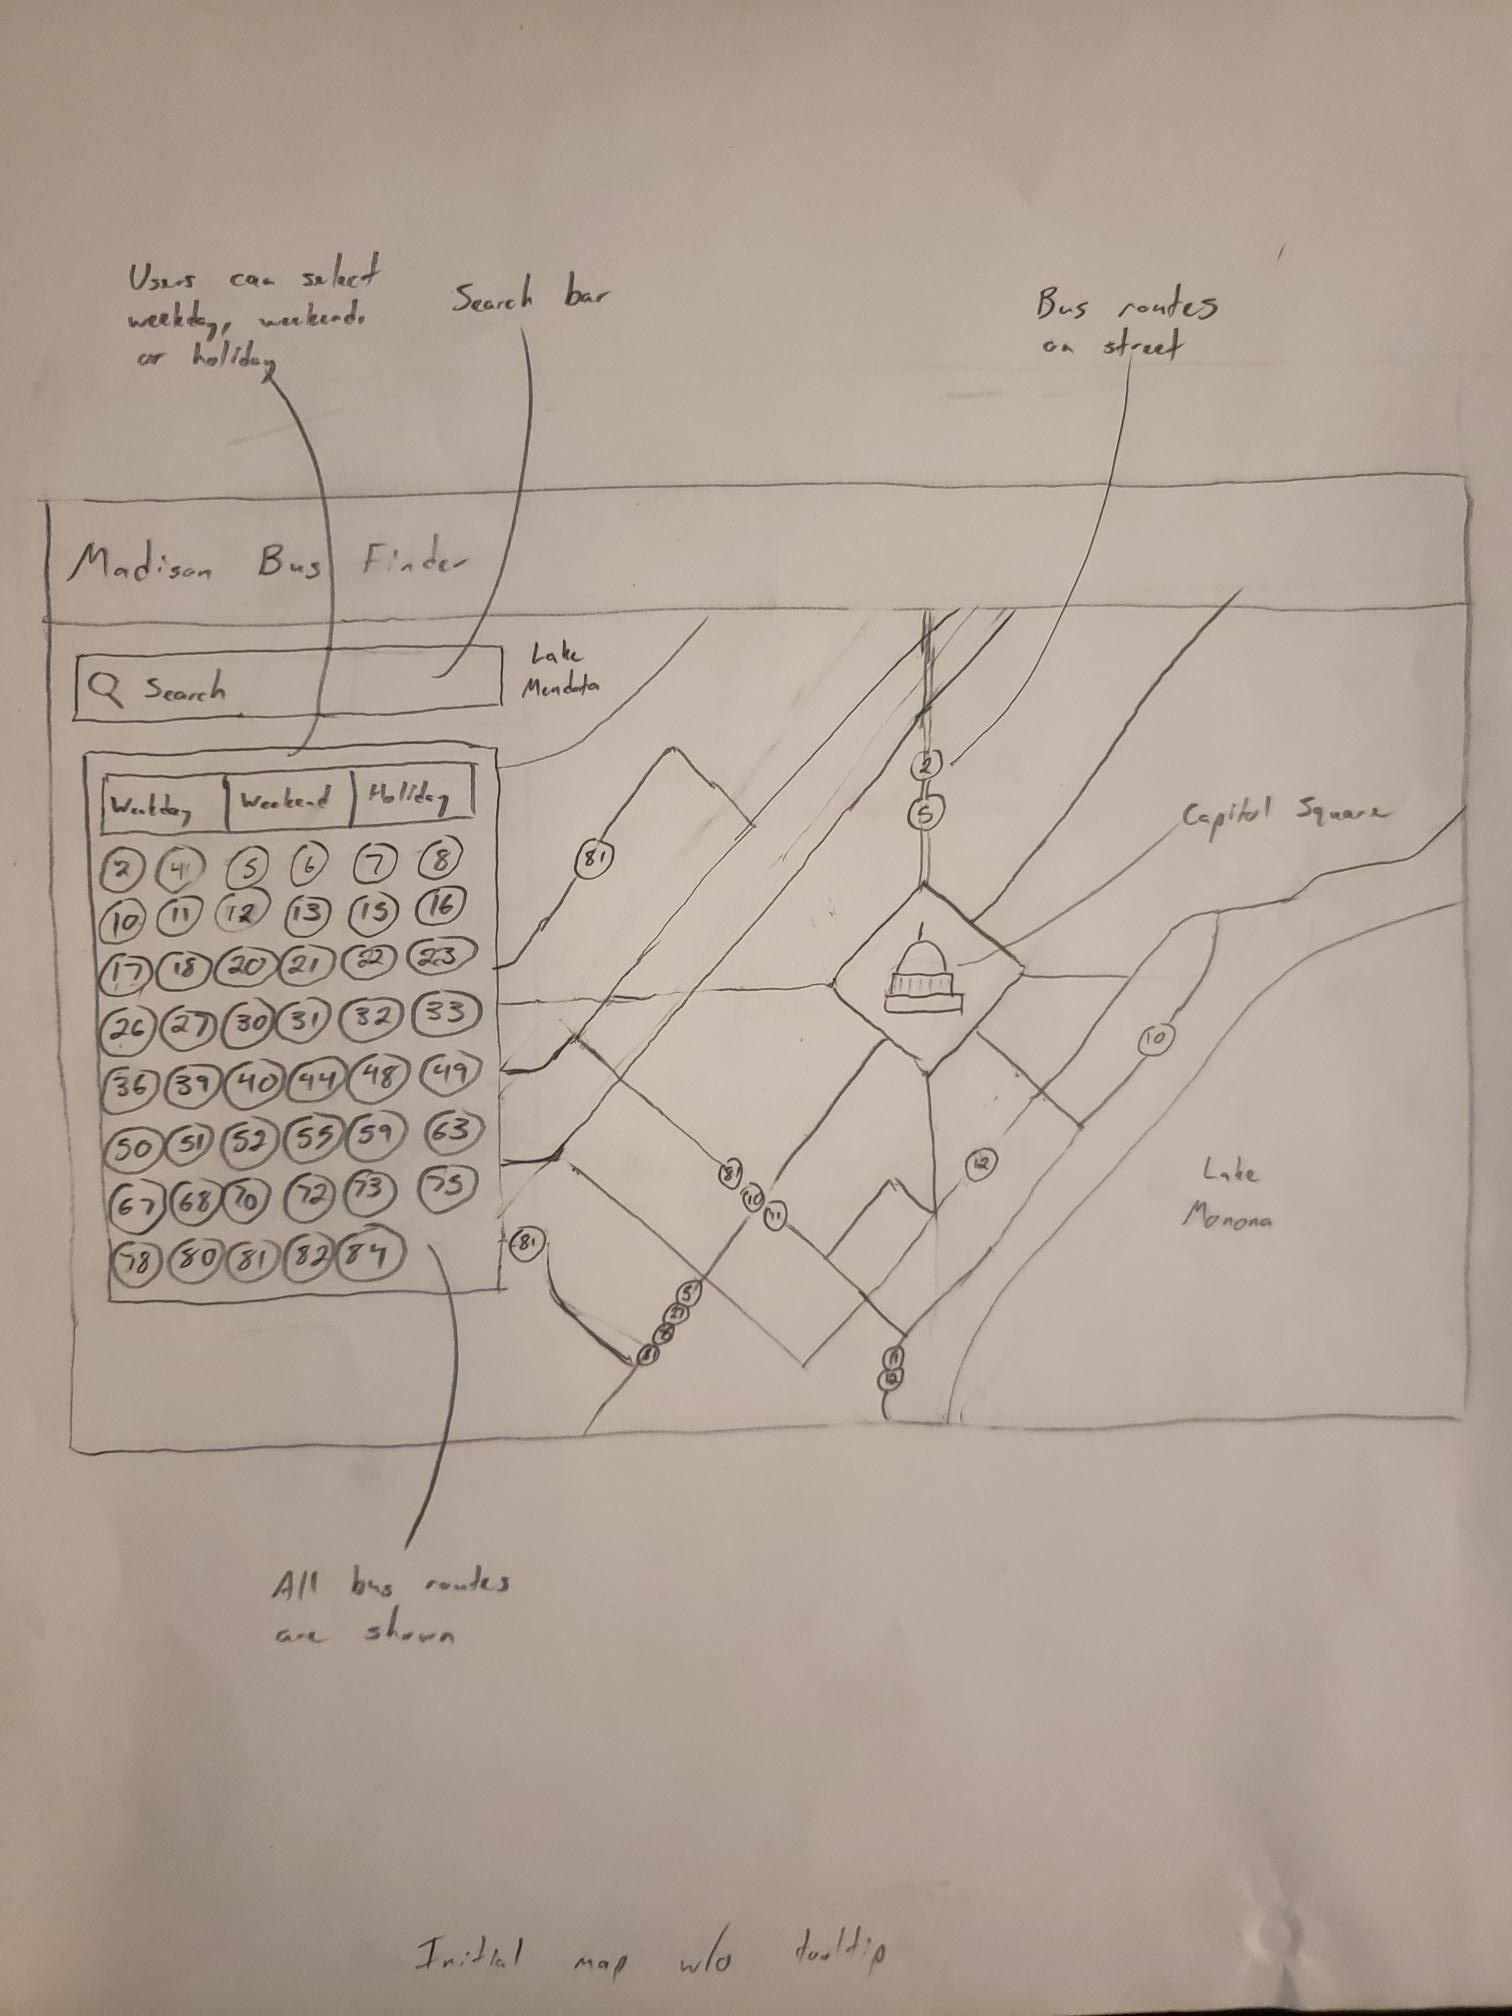 Users can select
weekday, weekend,
or holiday
Search bar
Bus routes
on street
Madison Bus Finder
Search
Lake
Mendota
Weekday Weekend Holiday
2 4 5 6 7 8
10 11 12 13 15 16
17 18 20 21 22 23
26 27 30 31 32 33
36 39 40 44 48 49
50 51 52 55 59 63
67 68 70 72 73 75
78 80 81 82 84
81
2
5
Capitol Square
10
12
81
10
11
Lake
Monona
81
5
27
81
11
12
All bus routes
are shown
Initial map w/o tooltip